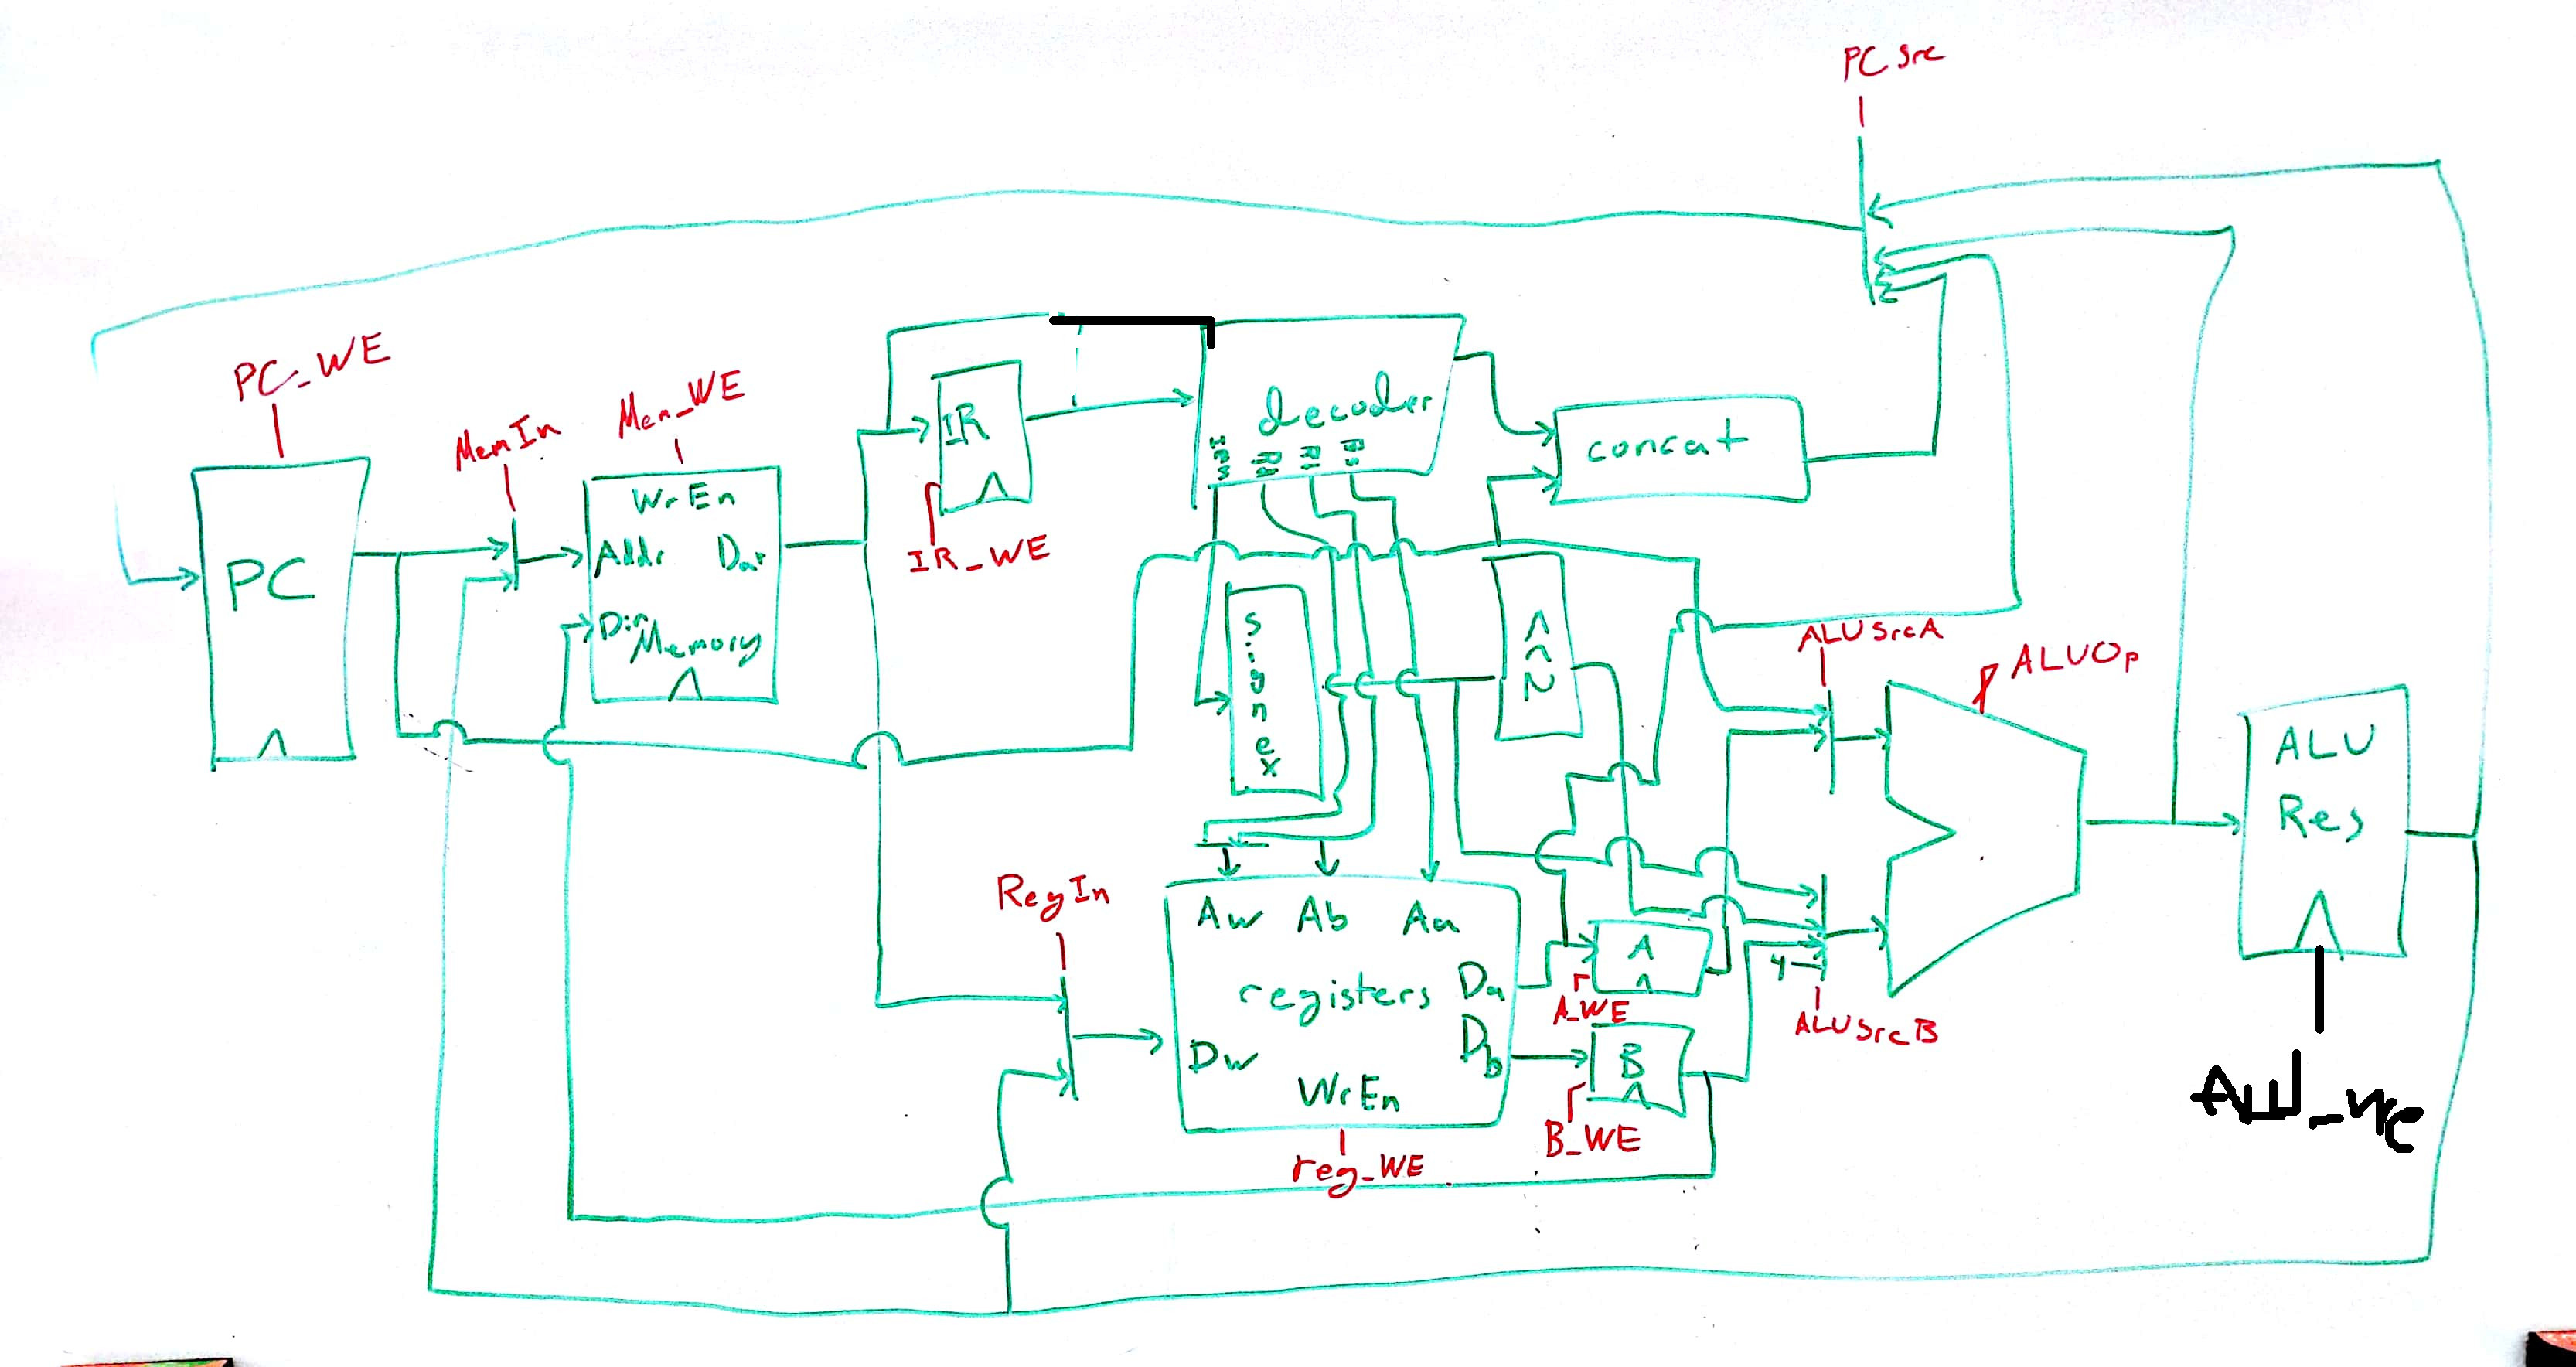 PC Src
PC_WE
MemIn
Mem_WE
PC
WrEn
Addr
Din
Memory
IR
IR_WE
decoder
Imm
Rd
Rt
Rs
concat
signex
<<2
ALUSrcA
ALUOp
ALU
Res
RegIn
Aw Ab Aa
registers
Da
Db
Dw
WrEn
reg_WE
A
A_WE
B
B_WE
4
ALUSrcB